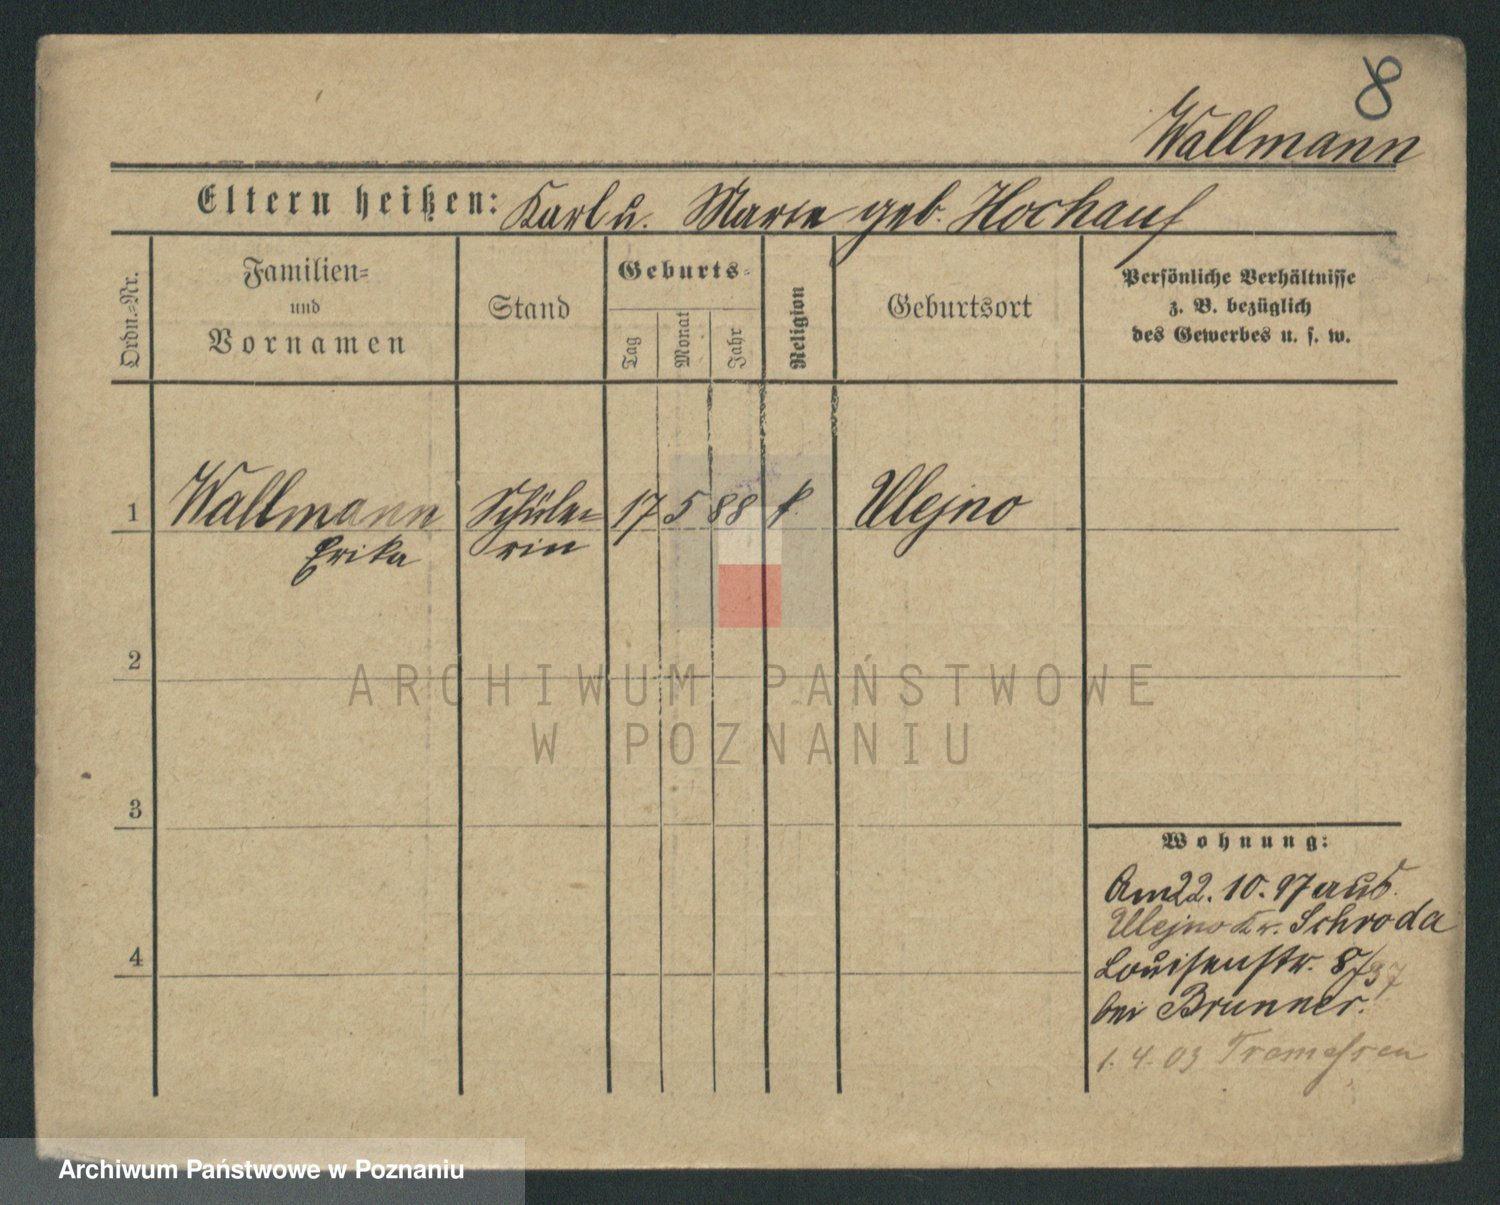 8
Wallmann
Eltern heißen: Karl u. Marie geb. Hochauf
Ordn.-Nr.
Familien-
und
Vornamen
Stand
Geburts-
Tag
Monat
Jahr
Religion
Geburtsort
Persönliche Verhältnisse
z. B. bezüglich
des Gewerbes u. s. w.
1 Wallmann Schüle- 17 5 88 k. Ulejno
Erika rin
2
ARCHIWUM PAŃSTWOWE
W POZNANIU
3
Wohnung:
Am 22. 10. 97 aus
Ulejno Kr. Schroda
4
Louisenstr. 8/
bei Brunner.
1. 4. 03 Tremessen
Archiwum Państwowe w Poznaniu